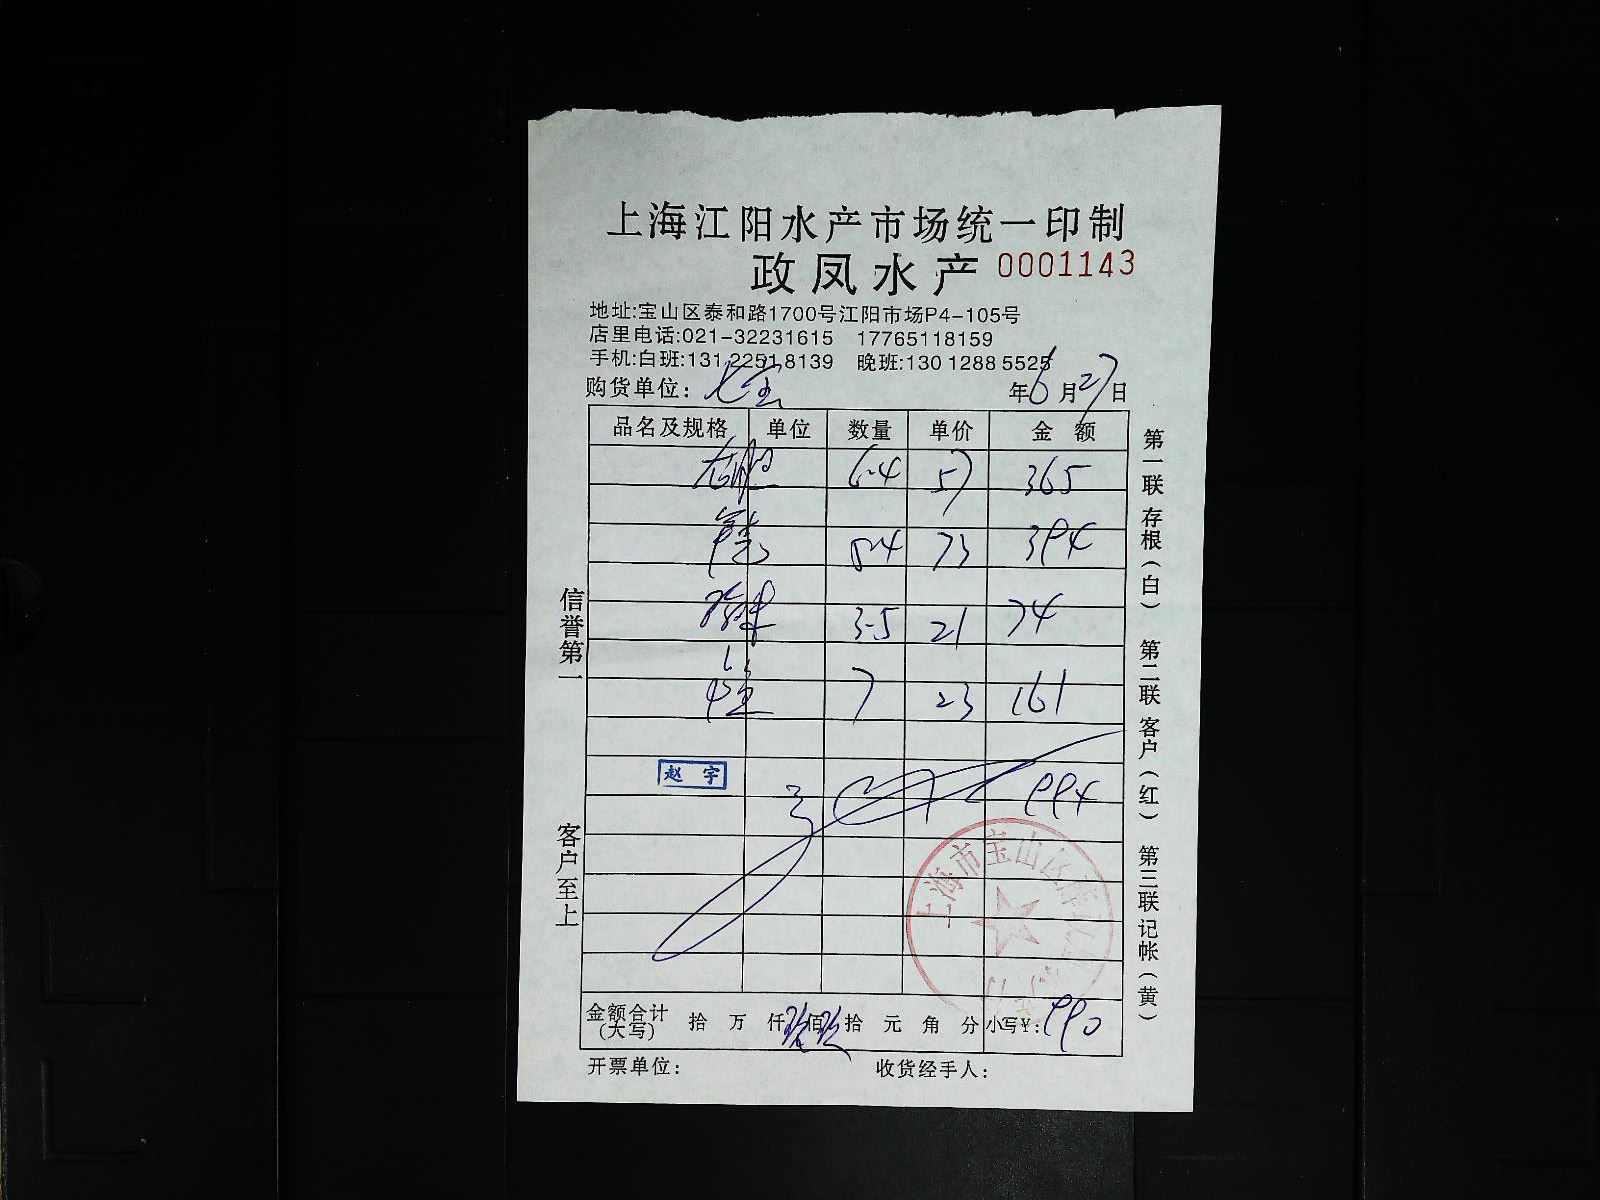 上海江阳水产市场统一印制
政凤水产 0001143
地址:宝山区泰和路1700号江阳市场P4-105号
店里电话:021-32231615 17765118159
手机:白班:131 2251 8139 晚班:130 1288 5525
购货单位: 七宝 年6月27日
品名及规格 单位 数量 单价 金额
6-4 57 365
5-4 73 394
3-5 21 74
7 23 161
赵宇
994
上海市宝山区
金额合计(大写) 拾 万 仟 玖佰玖拾 元 角 分 小写¥: 990
开票单位: 收货经手人:
信誉第一
客户至上
第一联存根(白)
第二联客户(红)
第三联记帐(黄)